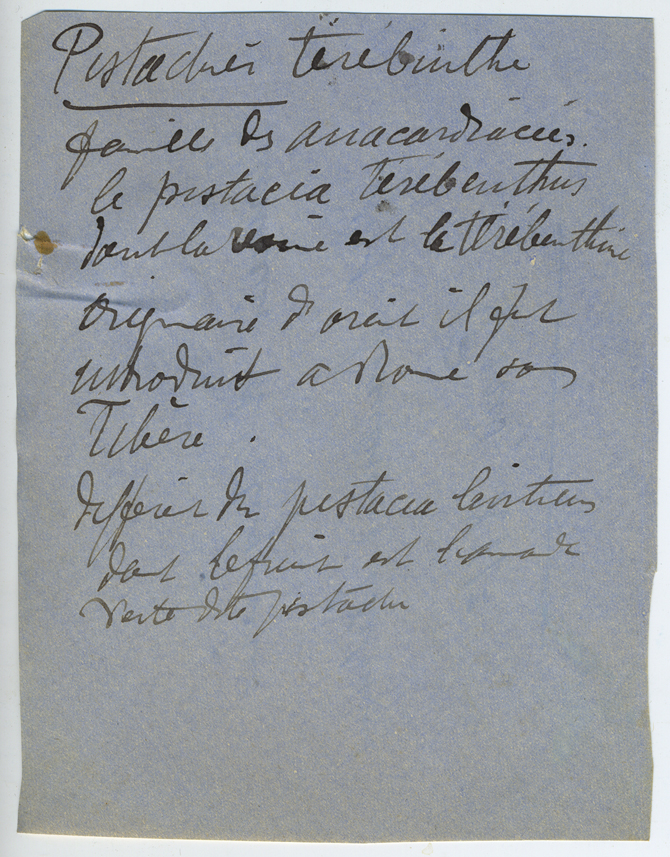 Pistachier térébinthe
famille des anacardiacées.
le pistacia térébenthus
dont la résine est la térébenthine
originaire d'orient il fut
introduit a Rome sous
Tibère.
différent du pistacia
dont le fruit est l'amande
verte dite pistache